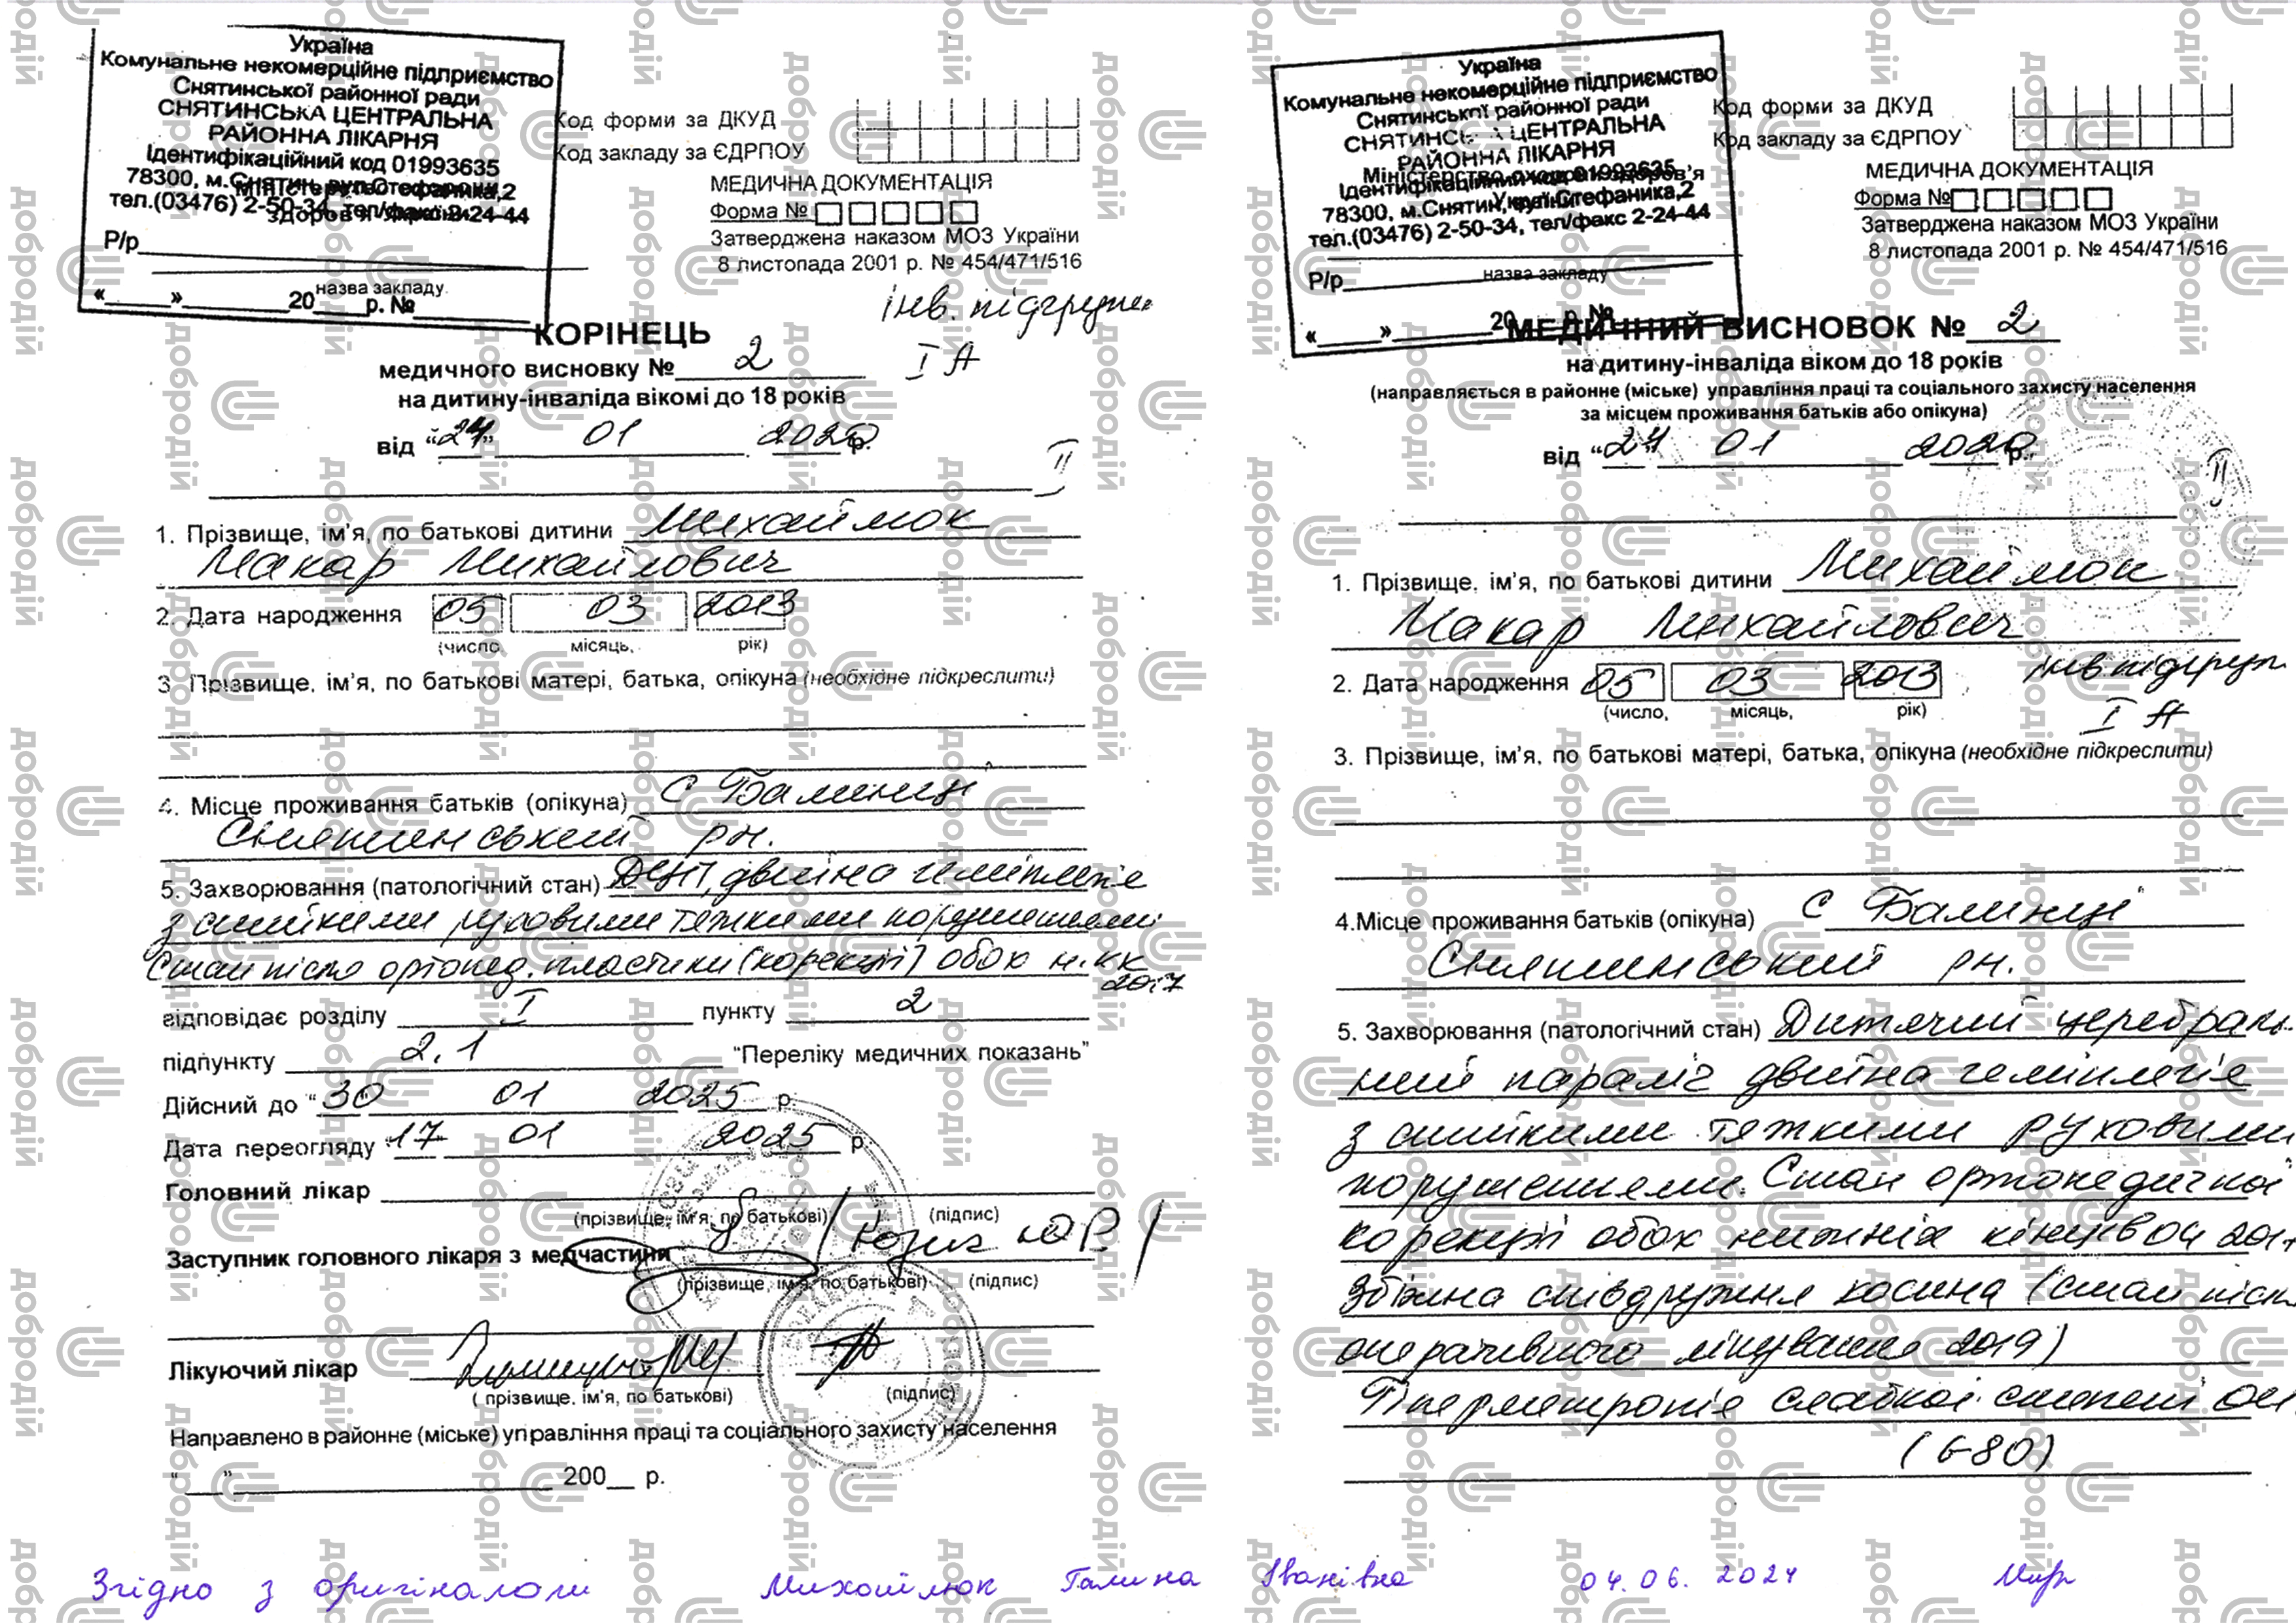 Україна
Комунальне некомерційне підприємство
Снятинської районної ради
СНЯТИНСЬКА ЦЕНТРАЛЬНА
РАЙОННА ЛІКАРНЯ
Ідентифікаційний код 01993635
78300, м.Снятин, вул.Стефаника,2
тел.(03476) 2-50-34, тел/факс 2-24-44
Р/р
назва закладу
«___»________20___р. №
Код форми за ДКУД
Код закладу за ЄДРПОУ
МЕДИЧНА ДОКУМЕНТАЦІЯ
Форма №
Затверджена наказом МОЗ України
8 листопада 2001 р. № 454/471/516
інв. підгрупа
I А
КОРІНЕЦЬ
медичного висновку № 2
на дитину-інваліда вікомі до 18 років
від “24” 01 2020 р.
II
1. Прізвище, ім’я, по батькові дитини Михайлюк
Макар Михайлович
2. Дата народження 05 03 2013
(число місяць, рік)
3. Прізвище, ім’я, по батькові матері, батька, опікуна (необхідне підкреслити)
4. Місце проживання батьків (опікуна) с Балинці
Снятинський рн.
5. Захворювання (патологічний стан) ДЦП, двійна геміплегія
з стійкими руховими тяжкими порушеннями
Стан після ортопед. пластики (корекції) обох н.кк
2017
відповідає розділу I пункту 2
підпункту 2.1 “Переліку медичних показань”
Дійсний до “30 01 2025 р.
Дата переогляду “17 01 2025 р.
Головний лікар
(прізвище, ім’я, по батькові) (підпис)
Заступник головного лікаря з медчастини
(прізвище, ім’я, по батькові) (підпис)
Лікуючий лікар
( прізвище, ім’я, по батькові) (підпис)
Направлено в районне (міське) управління праці та соціального захисту населення
“___”________ 200__ р.
Україна
Комунальне некомерційне підприємство
Снятинської районної ради
СНЯТИНСЬКА ЦЕНТРАЛЬНА
РАЙОННА ЛІКАРНЯ
Ідентифікаційний код 01993635
78300, м.Снятин, вул.Стефаника,2
тел.(03476) 2-50-34, тел/факс 2-24-44
Р/р
назва закладу
«___»________20___р. №
Код форми за ДКУД
Код закладу за ЄДРПОУ
МЕДИЧНА ДОКУМЕНТАЦІЯ
Форма №
Затверджена наказом МОЗ України
8 листопада 2001 р. № 454/471/516
МЕДИЧНИЙ ВИСНОВОК № 2
на дитину-інваліда віком до 18 років
(направляється в районне (міське) управління праці та соціального захисту населення
за місцем проживання батьків або опікуна)
від “24” 01 2020 р.
II
1. Прізвище, ім’я, по батькові дитини Михайлюк
Макар Михайлович
2. Дата народження 05 03 2013
(число, місяць, рік)
інв.підгруп
I А
3. Прізвище, ім’я, по батькові матері, батька, опікуна (необхідне підкреслити)
4.Місце проживання батьків (опікуна) с Балинці
Снятинський рн.
5. Захворювання (патологічний стан) Дитячий церебраль-
ний параліч двійна геміплегія
з стійкими тяжкими руховими
порушеннями. Стан ортопедичної
корекції обох нижніх кінцівок
Збіжна співдружня косина (стан після
оперативного лікування 2019)
Гіперметропія слабкої степені
(G80)
Згідно з оригіналом Михайлюк Галина Іванівна 04.06.2024